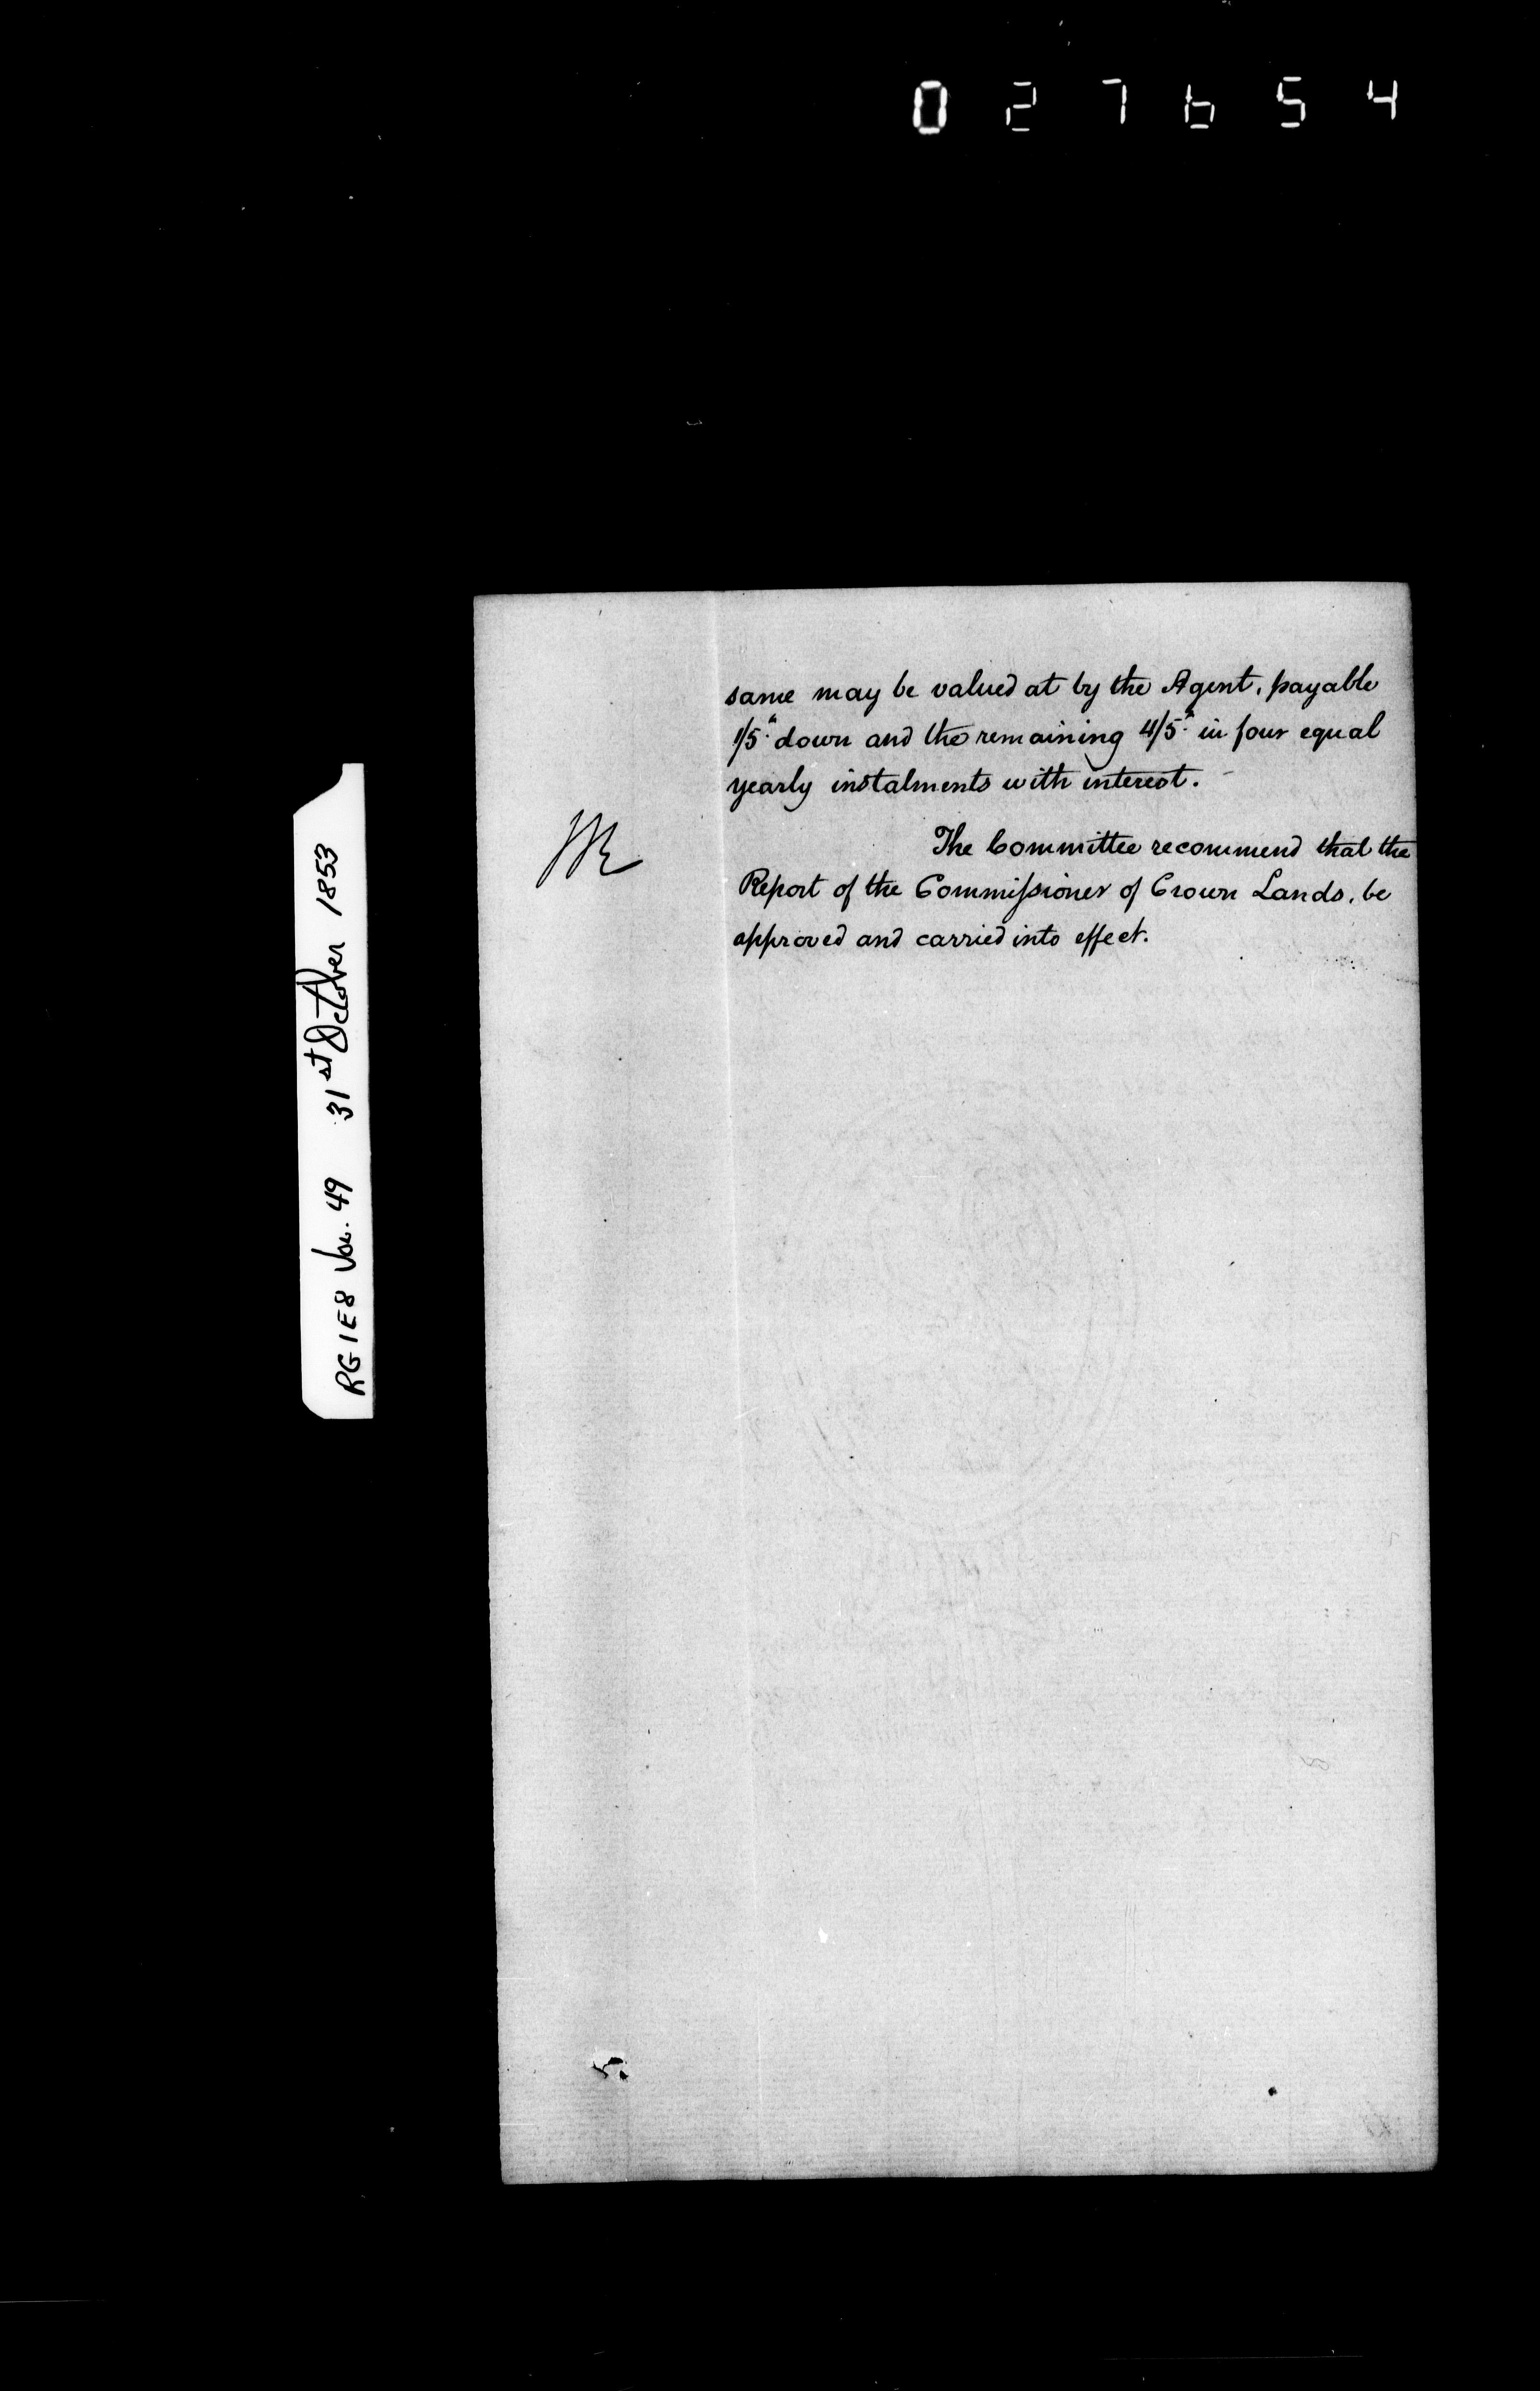 027654
same may be valued at by the Agent, payable
1/5th down and the remaining 4/5th in four equal
yearly instalments with interest.
The Committee recommend that the
Report of the Commissioner of Crown Lands, be
approved and carried into effect.
RG1E8 Vol. 49 31st October 1853